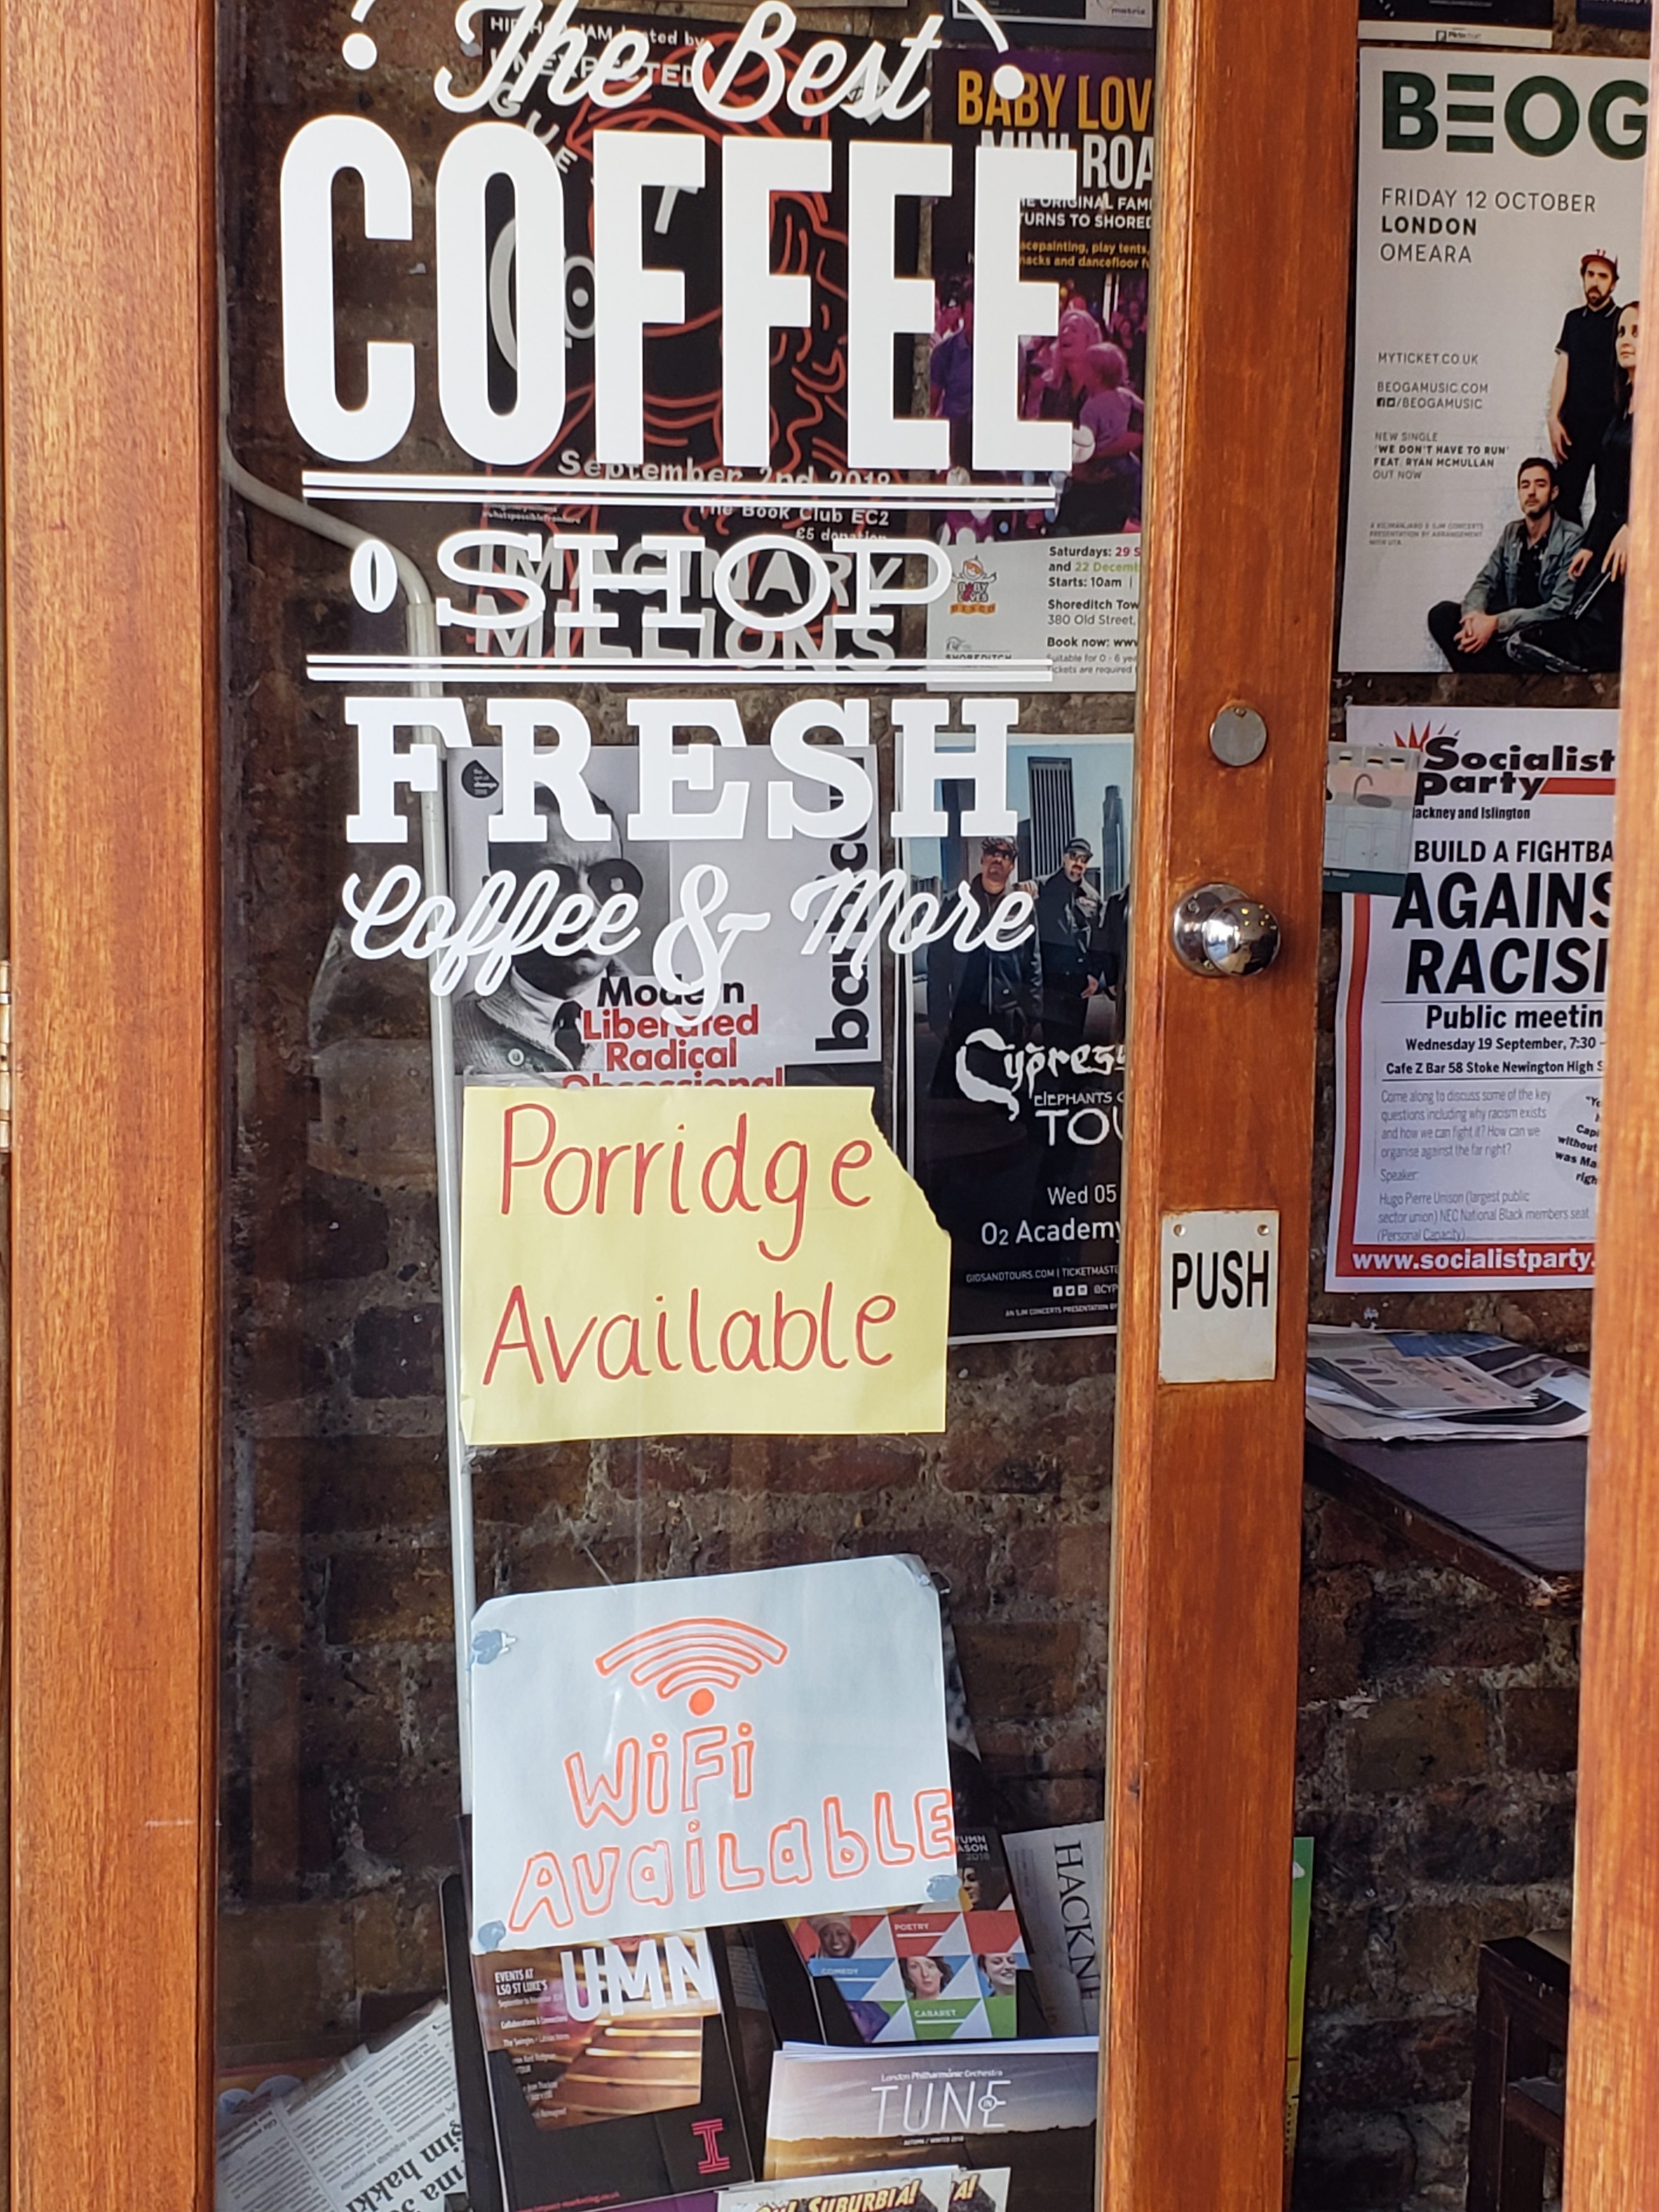 The Best
COFFEE
SHOP
FRESH
Coffee & More
Porridge
Available
WiFi
AVaiLabLE
PUSH
hosted by
UNEXPECTED
September 2nd 2018
The Book Club EC2
£5 donation
IMAGINARY
MILLIONS
BABY LOV
MINI ROA
ORIGINAL FAM
TURNS TO SHORED
acepainting, play tents,
nacks and dancefloor f
Saturdays: 29 S
and 22 Decemb
Starts: 10am |
Shoreditch Tow
380 Old Street,
Book now: www
Suitable for 0 - 6 yea
Tickets are required
BEOG
FRIDAY 12 OCTOBER
LONDON
OMEARA
MYTICKET.CO.UK
BEOGAMUSIC.COM
/BEOGAMUSIC
NEW SINGLE
'WE DON'T HAVE TO RUN'
FEAT. RYAN MCMULLAN
OUT NOW
Modern
Liberated
Radical
Obsessional
Cypress
ELEPHANTS O
TOU
Wed 05
O2 Academy
GIGSANDTOURS.COM | TICKETMAST
Socialist
Party
ackney and Islington
BUILD A FIGHTBA
AGAINS
RACIS
Public meetin
Wednesday 19 September, 7:30 -
Cafe Z Bar 58 Stoke Newington High S
Come along to discuss some of the key
questions including why racism exists
and how we can fight it? How can we
organise against the far right?
Speaker:
Hugo Pierre Unison (largest public
sector union) NEC National Black members seat
(Personal Capacity)
www.socialistparty.
HACKN
POETRY
COMEDY
CABARET
EVENTS AT
LSO ST LUKE'S
UMN
London Philharmonic Orchestra
TUNE
IN
AUTUMN / WINTER 2018
SUBURBIA!